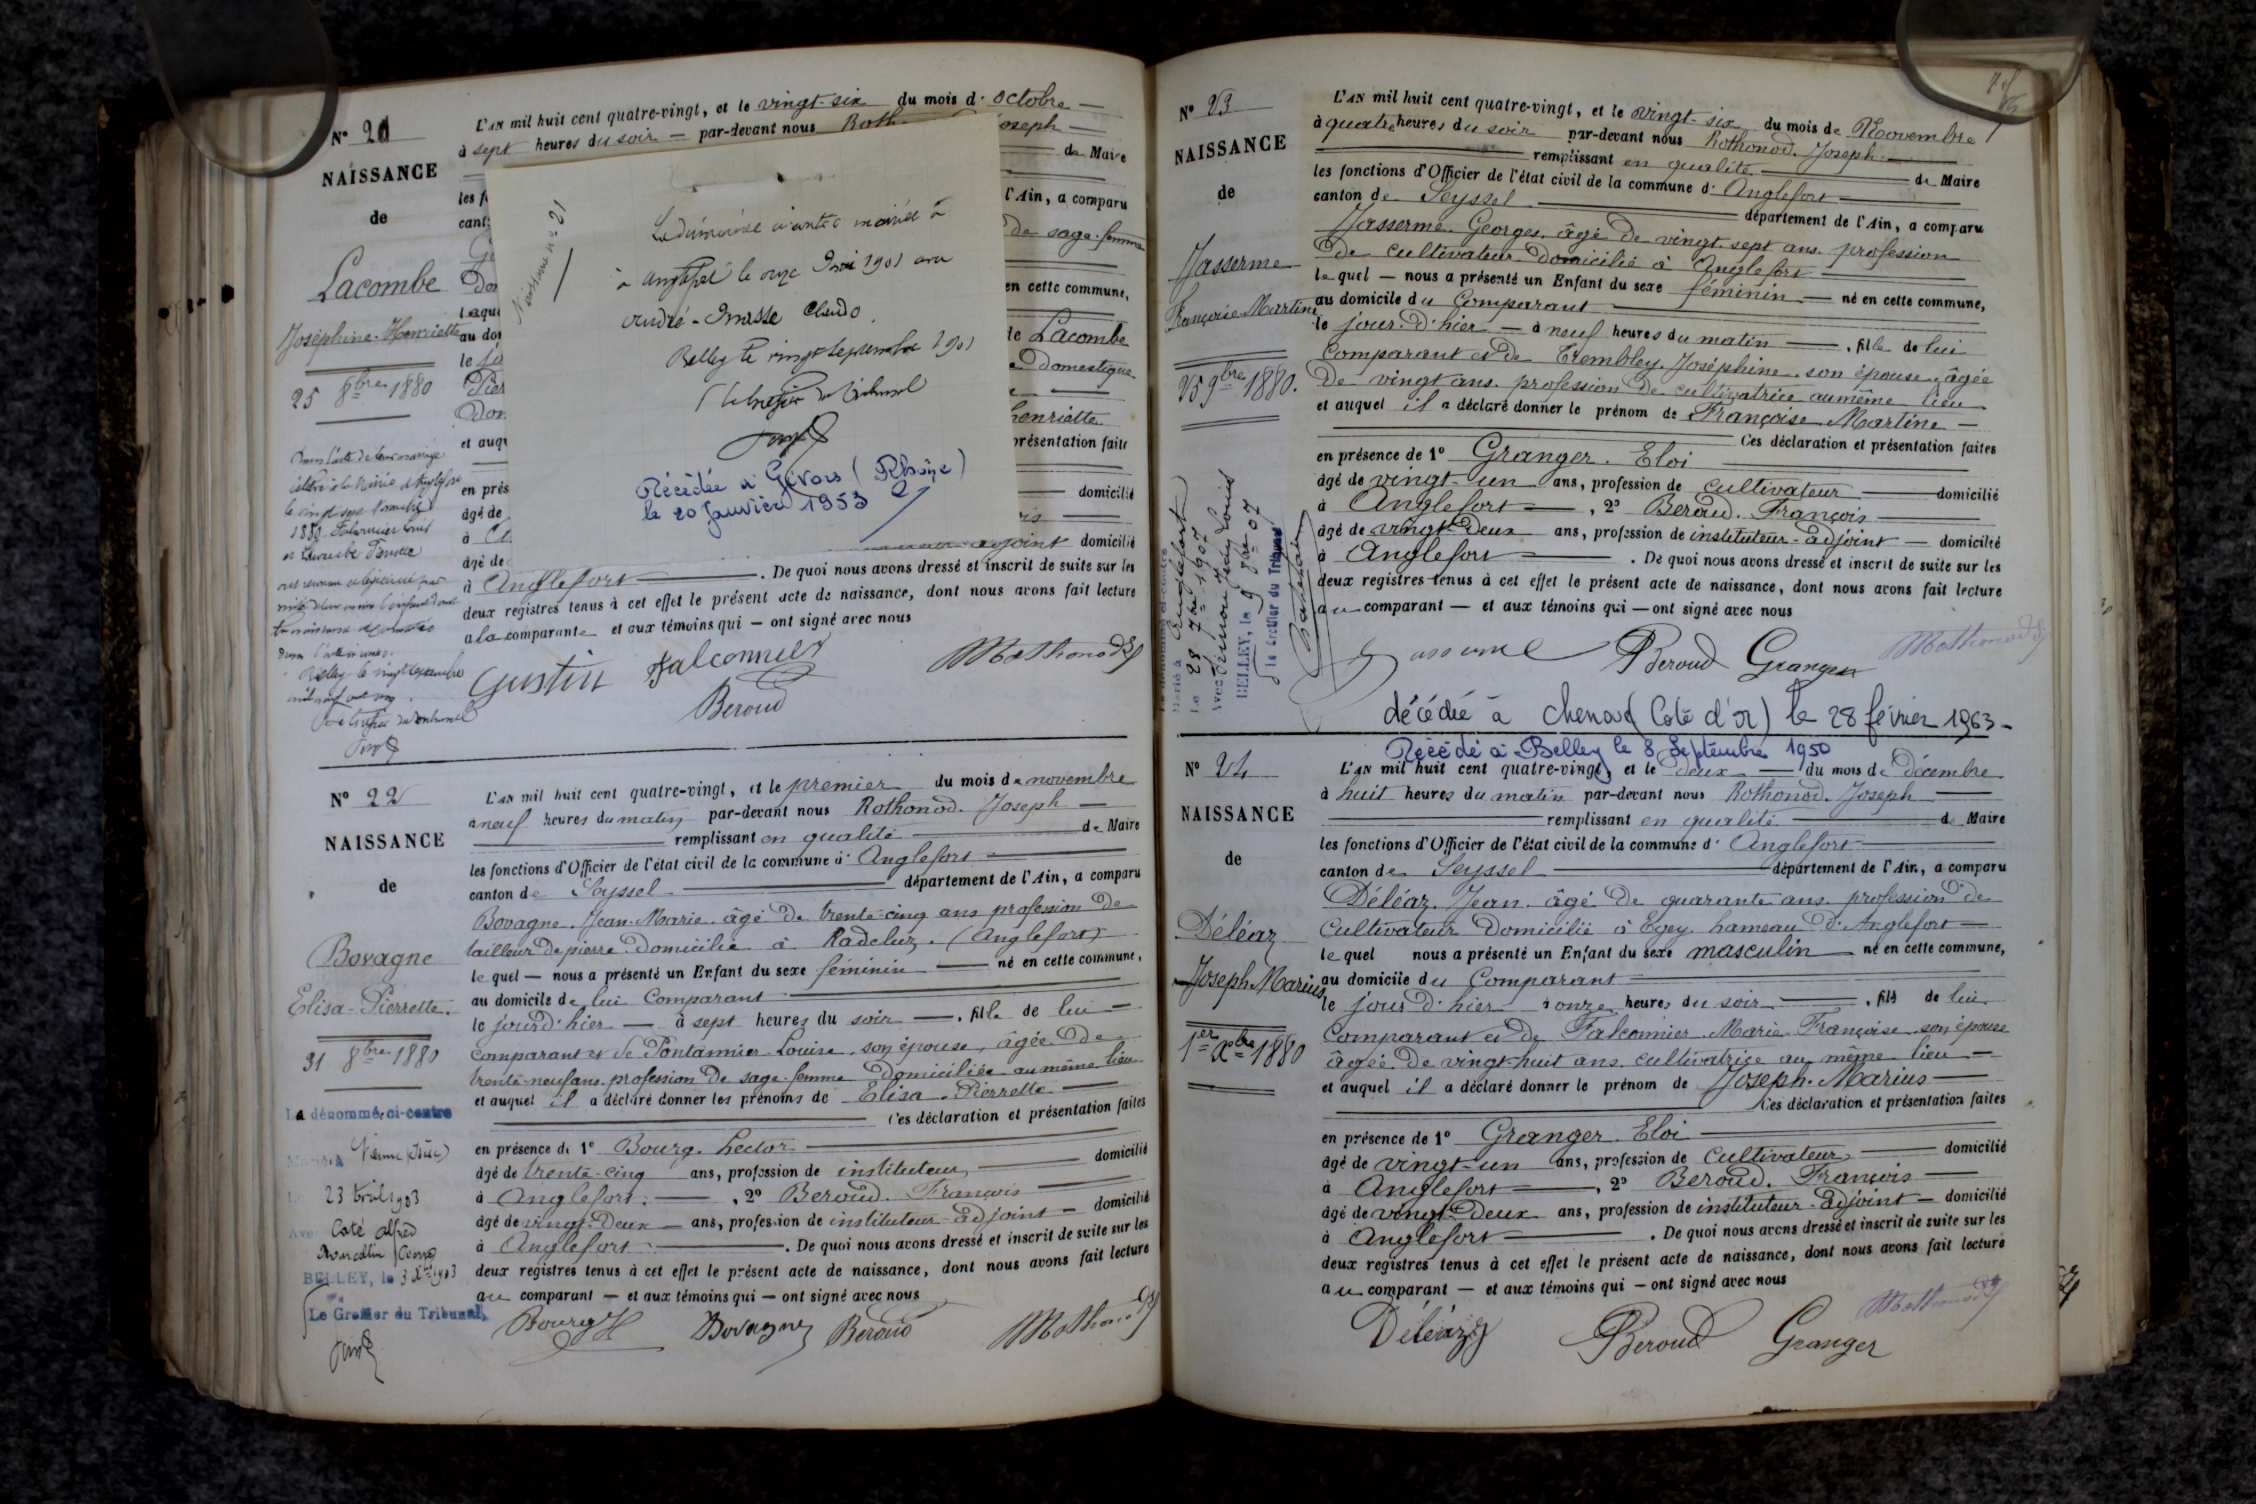 N° 21
NAISSANCE
de
Lacombe
Joséphine-Henriette
25 8bre 1880
L'AN mil huit cent quatre-vingt, et le vingt-six du mois d'octobre
à sept heures du soir — par-devant nous Roth oseph
de Maire
l'Ain, a comparu
de sage-femme
en cette commune,
de Lacombe
domestique
henriette
présentation faite
domicilié
adjoint domicilié
à Anglefort . De quoi nous avons dressé et inscrit de suite sur les
deux registres tenus à cet effet le présent acte de naissance, dont nous avons fait lecture
a la comparante et aux témoins qui — ont signé avec nous
Gustin Falconnier
Beroud
Naissance n° 21
La dénommée ci-contre mariée à
à Anglefort le onze Mai 1901 avec
Belley le vingt Septembre 1901
Le Greffier du Tribunal
Décédée à Givors (Rhône)
le 20 Janvier 1953
Belley le vingt Septembre
N° 22
NAISSANCE
de
Bovagne
Elisa-Pierrette.
31 8bre 1880
La dénommée ci-contre
23 avril 1903
Coté Alfred
BELLEY, le 3 Xbre 1903
Le Greffier du Tribunal,
L'AN mil huit cent quatre-vingt, et le premier du mois de novembre
à neuf heures du matin par-devant nous Rothonod. Joseph —
remplissant en qualité de Maire
les fonctions d'Officier de l'état civil de la commune d'Anglefort
canton de Seyssel département de l'Ain, a comparu
Bovagne. Jean-Marie. âgé de trente-cinq ans profession de
tailleur de pierre domicilié à Radeluz. (Anglefort)
lequel — nous a présenté un Enfant du sexe féminin — né en cette commune,
au domicile de lui Comparant
le jour d'hier — à sept heures du soir —, fille de lui —
comparant et de Pontannier Louise, son épouse, âgée de
trente-neuf ans profession de sage-femme domiciliée au même lieu
et auquel il a déclaré donner les prénoms de Elisa-Pierrette
Ces déclaration et présentation faites
en présence de 1° Bourg. Hector
âgé de trente-cinq ans, profession de instituteur domicilié
à Anglefort. —, 2° Beroud. François
âgé de vingt-deux — ans, profession de instituteur-adjoint — domicilié
à Anglefort . De quoi nous avons dressé et inscrit de suite sur les
deux registres tenus à cet effet le présent acte de naissance, dont nous avons fait lecture
au comparant — et aux témoins qui — ont signé avec nous
Bourg H Bovagne Beroud
N° 23
NAISSANCE
de
Jasserme
Françoise-Martine
25 9bre 1880.
Marié à Anglefort
Le 28 7bre 1907
BELLEY, le 9 8bre 07
Le Greffier du Tribunal
L'AN mil huit cent quatre-vingt, et le vingt-six du mois de Novembre
à quatre heures du soir par-devant nous Rothonod. Joseph
remplissant en qualité de Maire
les fonctions d'Officier de l'état civil de la commune d'Anglefort
canton de Seyssel département de l'Ain, a comparu
Jasserme. Georges. âgé de vingt-sept ans. profession
de cultivateur domicilié à Anglefort
lequel — nous a présenté un Enfant du sexe féminin — né en cette commune,
au domicile du Comparant
le jour d'hier — à neuf heures du matin —, fille de lui
comparant et de Trembley. Joséphine. son épouse. âgée
de vingt ans. profession de cultivatrice au même lieu
et auquel il a déclaré donner le prénom de Françoise Martine —
Ces déclaration et présentation faites
en présence de 1° Granger. Eloi
âgé de vingt-un ans, profession de cultivateur domicilié
à Anglefort —, 2° Beroud. François
âgé de vingt-deux ans, profession de instituteur-adjoint — domicilié
à Anglefort . De quoi nous avons dressé et inscrit de suite sur les
deux registres tenus à cet effet le présent acte de naissance, dont nous avons fait lecture
au comparant — et aux témoins qui — ont signé avec nous
Jasserme Beroud Granger
décédée à Chenove (Coté d'or) le 28 février 1963 -
Décédé à Belley le 8 Septembre 1950
N° 24
NAISSANCE
de
Déléaz
Joseph-Marius
1er Xbre 1880
L'AN mil huit cent quatre-vingt, et le deux — du mois de décembre
à huit heures du matin par-devant nous Rothonod. Joseph
remplissant en qualité de Maire
les fonctions d'Officier de l'état civil de la commune d'Anglefort
canton de Seyssel département de l'Ain, a comparu
Déléaz. Jean. âgé de quarante ans. profession de
Cultivateur domicilié à hameau d'Anglefort
lequel nous a présenté un Enfant du sexe masculin — né en cette commune,
au domicile du Comparant
le jour d'hier à onze heures du soir —, fils de lui
Comparant et de Falconnier Marie Françoise son épouse
âgée de vingt-huit ans. cultivatrice au même lieu —
et auquel il a déclaré donner le prénom de Joseph-Marius
Ces déclaration et présentation faites
en présence de 1° Granger. Eloi
âgé de vingt-un ans, profession de Cultivateur domicilié
à Anglefort —, 2° Beroud. François
âgé de vingt-deux ans, profession de instituteur-adjoint — domicilié
à Anglefort . De quoi nous avons dressé et inscrit de suite sur les
deux registres tenus à cet effet le présent acte de naissance, dont nous avons fait lecture
au comparant — et aux témoins qui — ont signé avec nous
Déléaz Beroud Granger